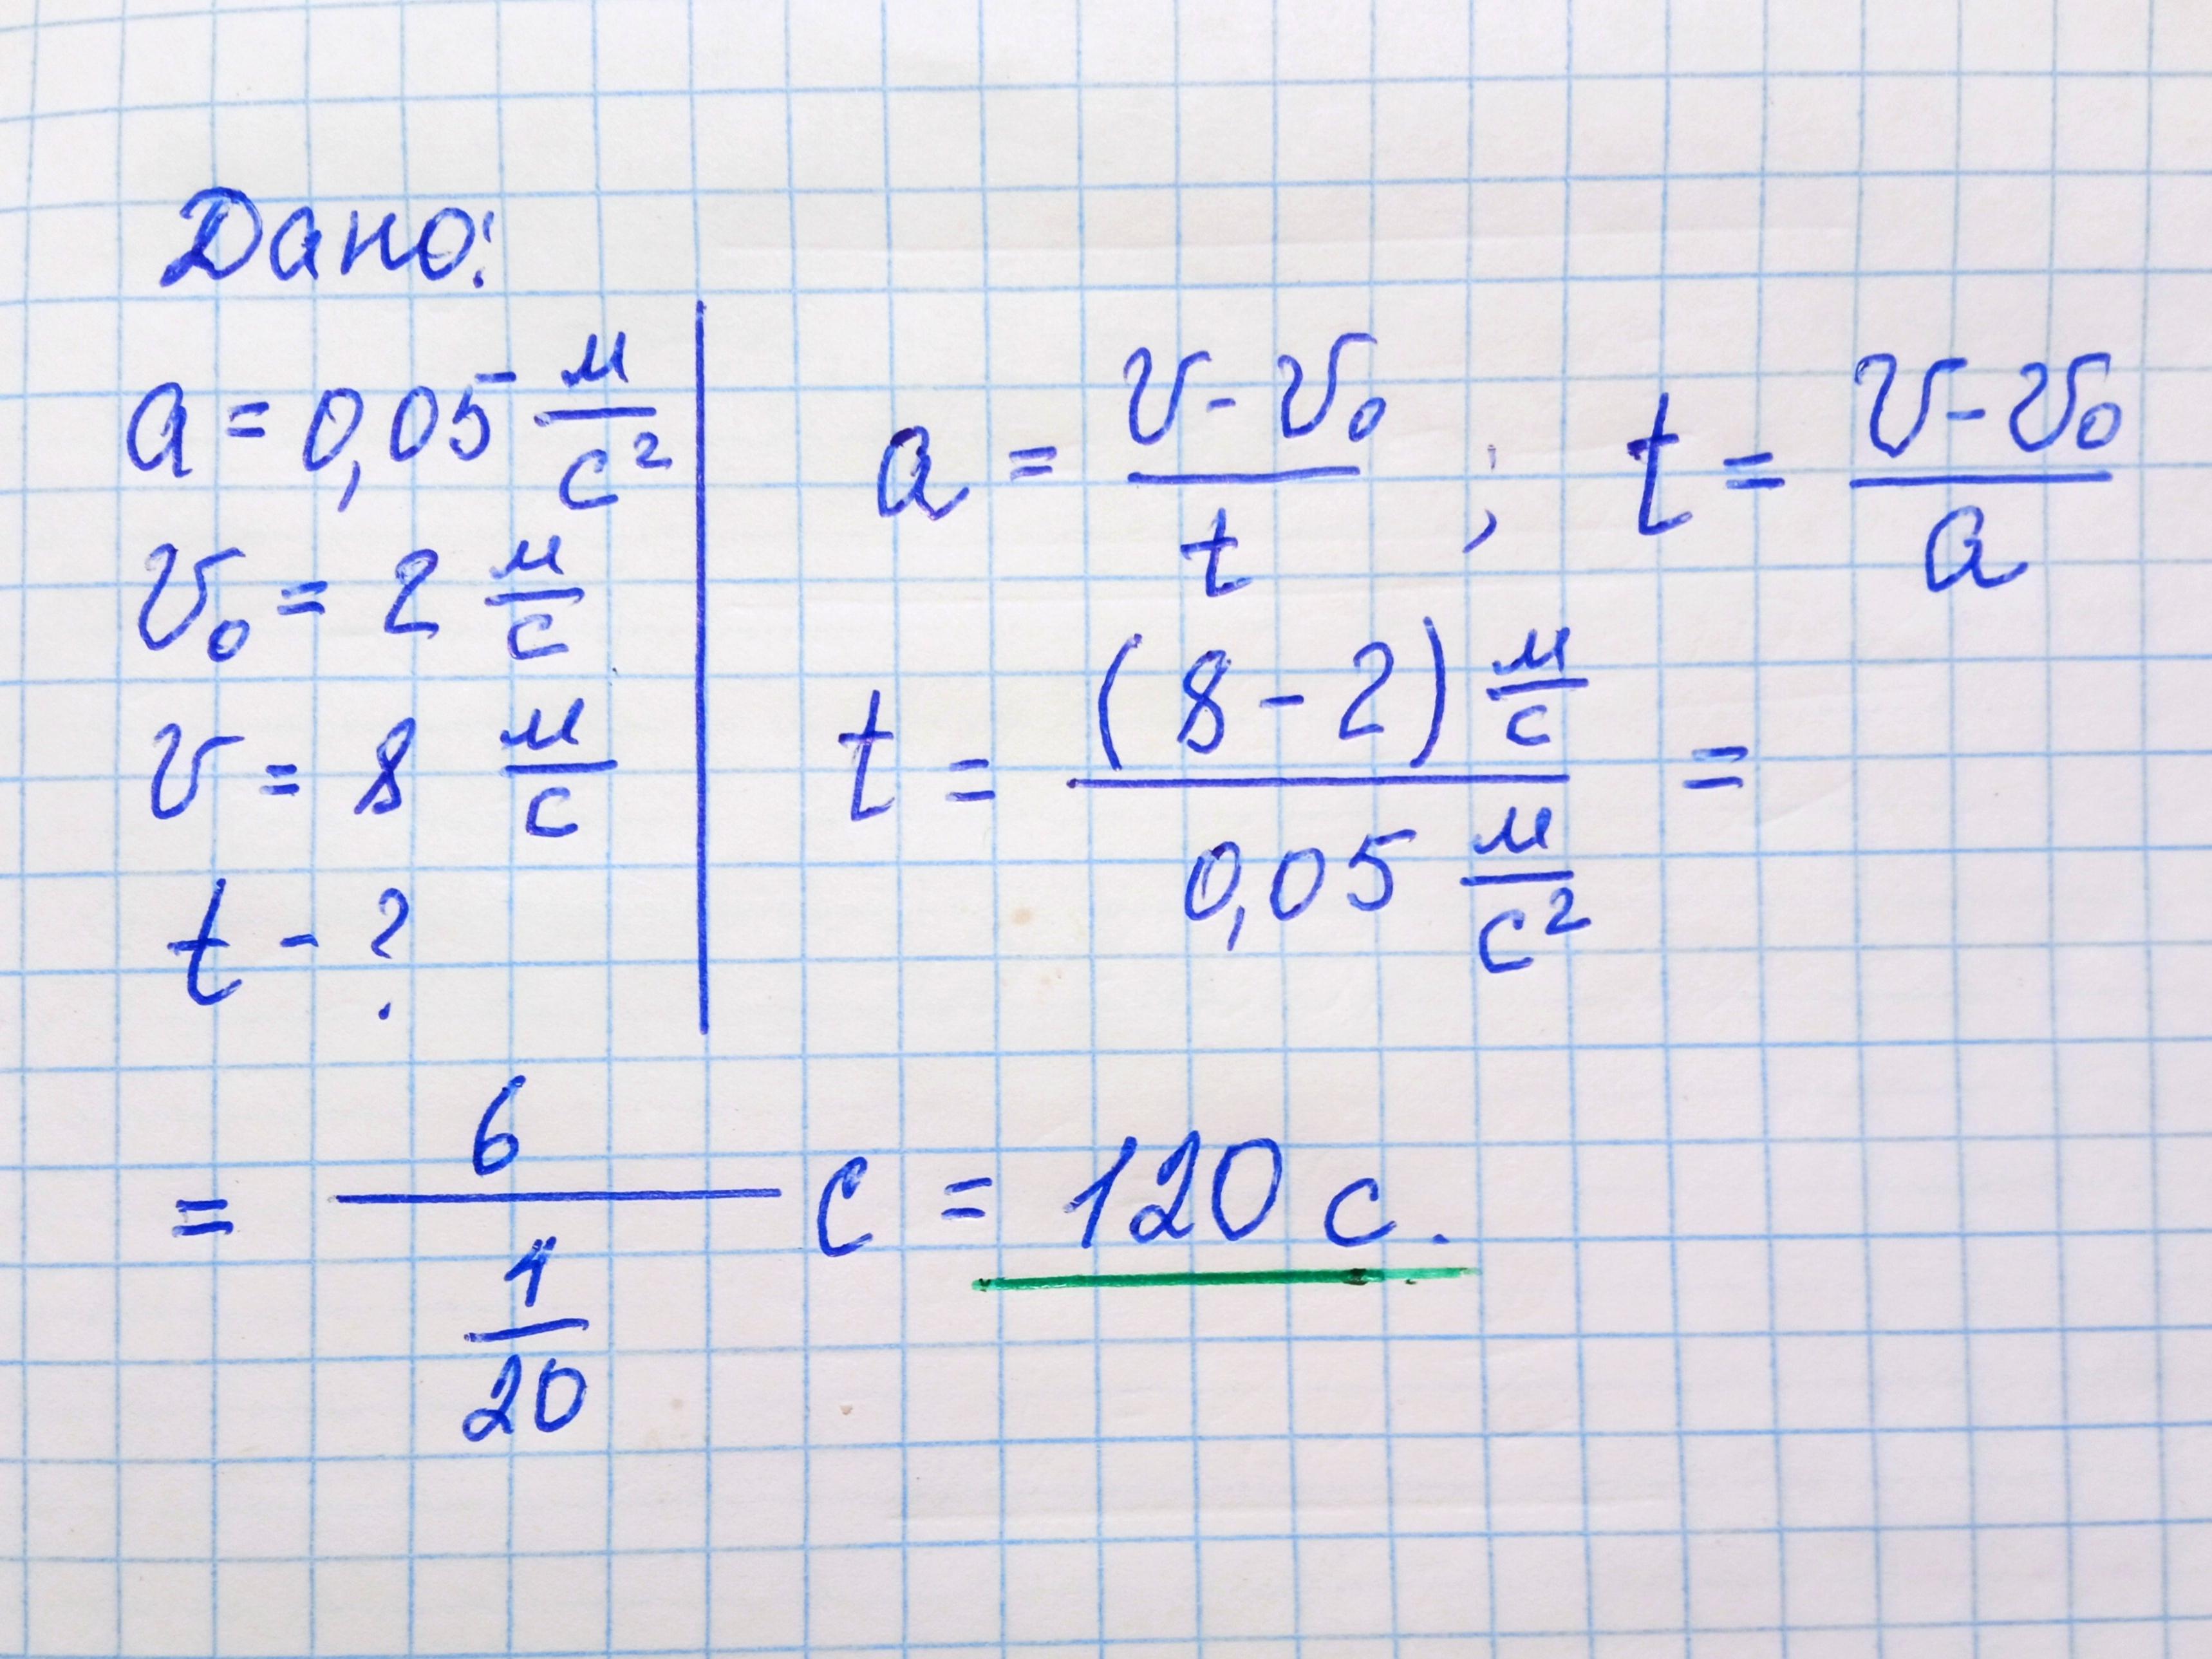 Дано:
a = 0,05 м/с²
v₀ = 2 м/с
v = 8 м/с
t - ?
a = (v - v₀)/t ; t = (v - v₀)/a
t = (8 - 2) м/с / 0,05 м/с² =
= 6/(1/20) с = 120 с.